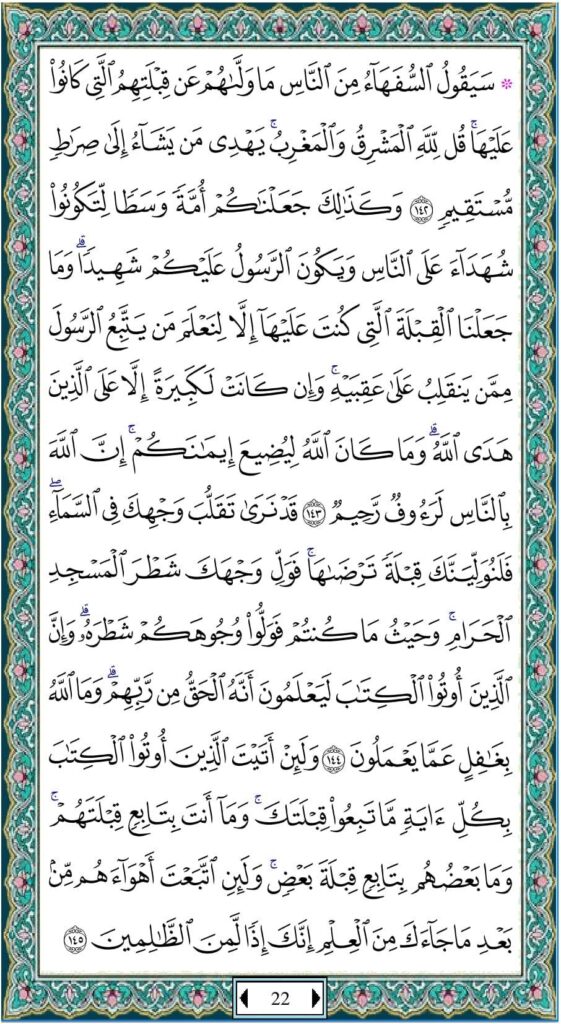 ۞ سَيَقُولُ ٱلسُّفَهَآءُ مِنَ ٱلنَّاسِ مَا وَلَّىٰهُمْ عَن قِبْلَتِهِمُ ٱلَّتِى كَانُوا۟
عَلَيْهَا ۚ قُل لِّلَّهِ ٱلْمَشْرِقُ وَٱلْمَغْرِبُ ۚ يَهْدِى مَن يَشَآءُ إِلَىٰ صِرَٰطٍ
مُّسْتَقِيمٍ ١٤٢ وَكَذَٰلِكَ جَعَلْنَٰكُمْ أُمَّةً وَسَطًا لِّتَكُونُوا۟
شُهَدَآءَ عَلَى ٱلنَّاسِ وَيَكُونَ ٱلرَّسُولُ عَلَيْكُمْ شَهِيدًا ۗ وَمَا
جَعَلْنَا ٱلْقِبْلَةَ ٱلَّتِى كُنتَ عَلَيْهَآ إِلَّا لِنَعْلَمَ مَن يَتَّبِعُ ٱلرَّسُولَ
مِمَّن يَنقَلِبُ عَلَىٰ عَقِبَيْهِ ۚ وَإِن كَانَتْ لَكَبِيرَةً إِلَّا عَلَى ٱلَّذِينَ
هَدَى ٱللَّهُ ۗ وَمَا كَانَ ٱللَّهُ لِيُضِيعَ إِيمَٰنَكُمْ ۚ إِنَّ ٱللَّهَ
بِٱلنَّاسِ لَرَءُوفٌ رَّحِيمٌ ١٤٣ قَدْ نَرَىٰ تَقَلُّبَ وَجْهِكَ فِى ٱلسَّمَآءِ ۖ
فَلَنُوَلِّيَنَّكَ قِبْلَةً تَرْضَىٰهَا ۚ فَوَلِّ وَجْهَكَ شَطْرَ ٱلْمَسْجِدِ
ٱلْحَرَامِ ۚ وَحَيْثُ مَا كُنتُمْ فَوَلُّوا۟ وُجُوهَكُمْ شَطْرَهُۥ ۗ وَإِنَّ
ٱلَّذِينَ أُوتُوا۟ ٱلْكِتَٰبَ لَيَعْلَمُونَ أَنَّهُ ٱلْحَقُّ مِن رَّبِّهِمْ ۗ وَمَا ٱللَّهُ
بِغَٰفِلٍ عَمَّا يَعْمَلُونَ ١٤٤ وَلَئِنْ أَتَيْتَ ٱلَّذِينَ أُوتُوا۟ ٱلْكِتَٰبَ
بِكُلِّ ءَايَةٍ مَّا تَبِعُوا۟ قِبْلَتَكَ ۚ وَمَآ أَنتَ بِتَابِعٍ قِبْلَتَهُمْ ۚ
وَمَا بَعْضُهُم بِتَابِعٍ قِبْلَةَ بَعْضٍ ۚ وَلَئِنِ ٱتَّبَعْتَ أَهْوَآءَهُم مِّنۢ
بَعْدِ مَا جَآءَكَ مِنَ ٱلْعِلْمِ إِنَّكَ إِذًا لَّمِنَ ٱلظَّٰلِمِينَ ١٤٥
22